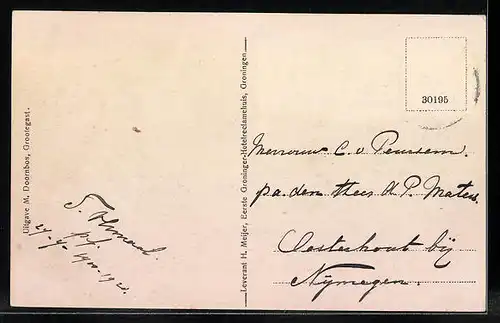 Uitgave M. Doornbos, Grootegast.
Leverant H. Meijer, Eerste Groninger-Hotelreclamehuis, Groningen
30195
Mevrouw C. v Peussem.
p.a. den Heer H. P. Maters
Oosterhout bij
Nijmegen.
p.f.